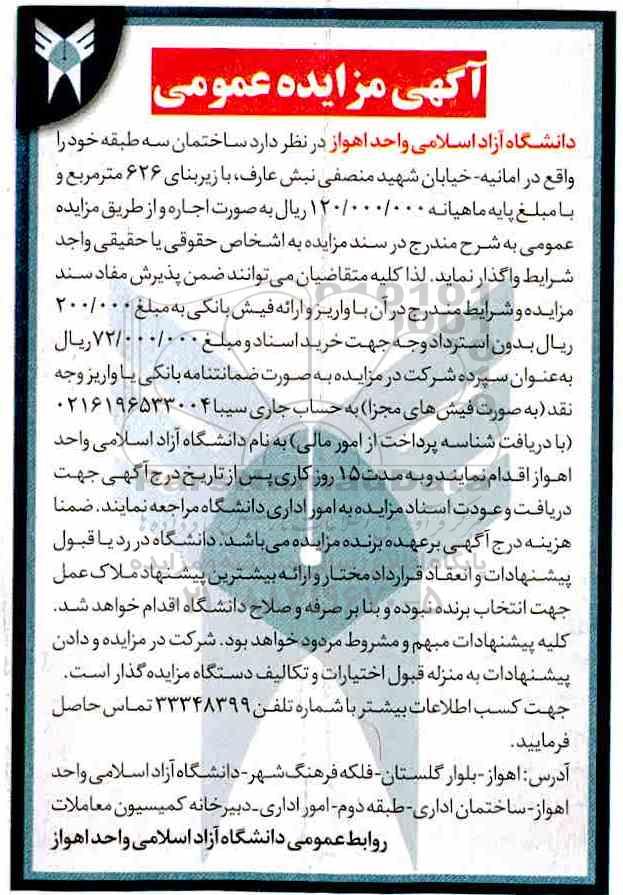 آگهی مزایده عمومی
دانشگاه آزاد اسلامی واحد اهواز در نظر دارد ساختمان سه طبقه خود را
واقع در امانیه-خیابان شهید منصفی نبش عارف، با زیربنای ۶۲۶ مترمربع و
با مبلغ پایه ماهیانه ۱۲۰/۰۰۰/۰۰۰ ریال به صورت اجاره و از طریق مزایده
عمومی به شرح مندرج در سند مزایده به اشخاص حقوقی یا حقیقی واجد
شرایط واگذار نماید. لذا کلیه متقاضیان می‌توانند ضمن پذیرش مفاد سند
مزایده و شرایط مندرج در آن با واریز و ارائه فیش بانکی به مبلغ ۲۰۰/۰۰۰
ریال بدون استرداد وجه جهت خرید اسناد و مبلغ ۷۲/۰۰۰/۰۰۰ ریال
به‌عنوان سپرده شرکت در مزایده به صورت ضمانتنامه بانکی یا واریز وجه
نقد (به صورت فیش‌های مجزا) به حساب جاری سیبا ۰۲۱۶۱۹۶۵۳۳۰۰۴
(با دریافت شناسه پرداخت از امور مالی) به نام دانشگاه آزاد اسلامی واحد
اهواز اقدام نمایند و به مدت ۱۵ روز کاری پس از تاریخ درج آگهی جهت
دریافت و عودت اسناد مزایده به امور اداری دانشگاه مراجعه نمایند. ضمنا
هزینه درج آگهی برعهده برنده مزایده می‌باشد. دانشگاه در رد یا قبول
پیشنهادات و انعقاد قرارداد مختار و ارائه بیشترین پیشنهاد ملاک عمل
جهت انتخاب برنده نبوده و بنا بر صرفه و صلاح دانشگاه اقدام خواهد شد.
کلیه پیشنهادات مبهم و مشروط مردود خواهد بود. شرکت در مزایده و دادن
پیشنهادات به منزله قبول اختیارات و تکالیف دستگاه مزایده گذار است.
جهت کسب اطلاعات بیشتر با شماره تلفن ۳۳۳۴۸۳۹۹ تماس حاصل
فرمایید.
آدرس: اهواز-بلوار گلستان-فلکه فرهنگ شهر-دانشگاه آزاد اسلامی واحد
اهواز-ساختمان اداری-طبقه دوم-امور اداری-دبیرخانه کمیسیون معاملات
روابط عمومی دانشگاه آزاد اسلامی واحد اهواز